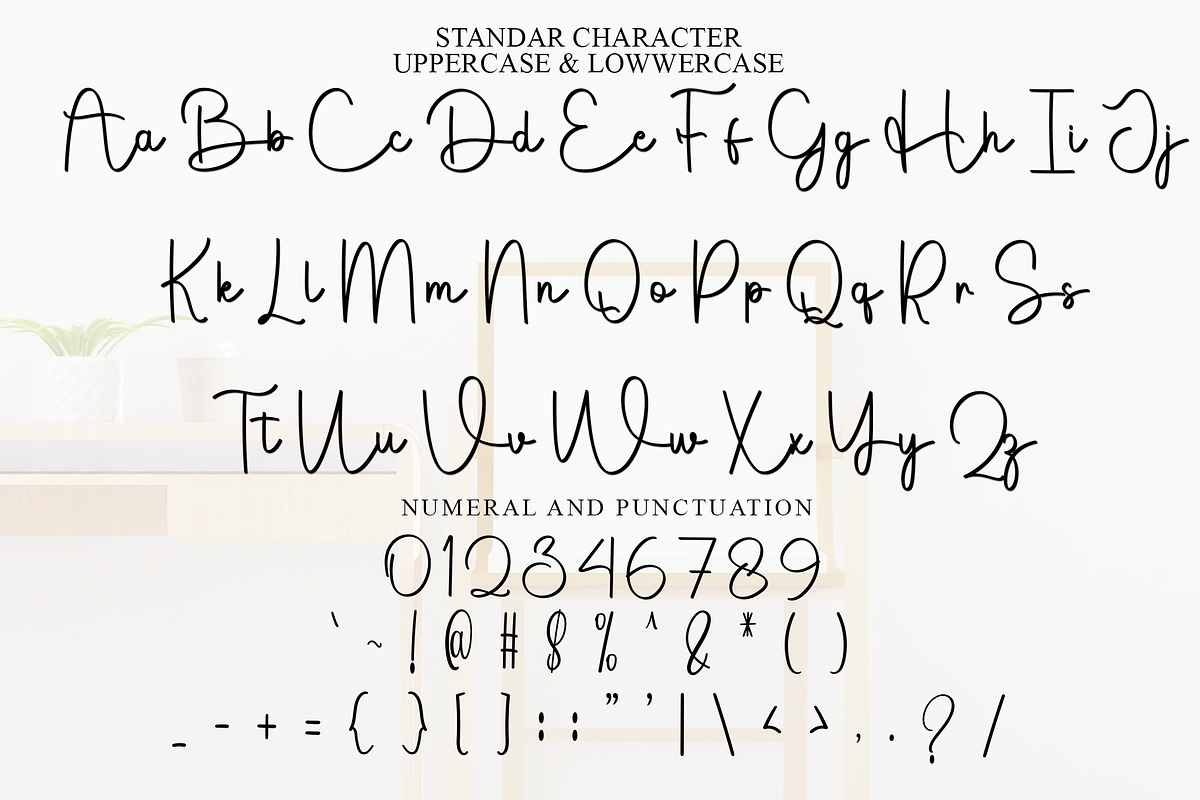 STANDAR CHARACTER
UPPERCASE & LOWWERCASE
Aa Bb Cc Dd Ee Ff Gg Hh Ii Jj
Kk Ll Mm Nn Oo Pp Qq Rr Ss
Tt Uu Vv Ww Xx Yy Zz
NUMERAL AND PUNCTUATION
012346789
` ~ ! @ # $ % ^ & * ( )
_ - + = { } [ ] : : " ' | \ < > , . ? /